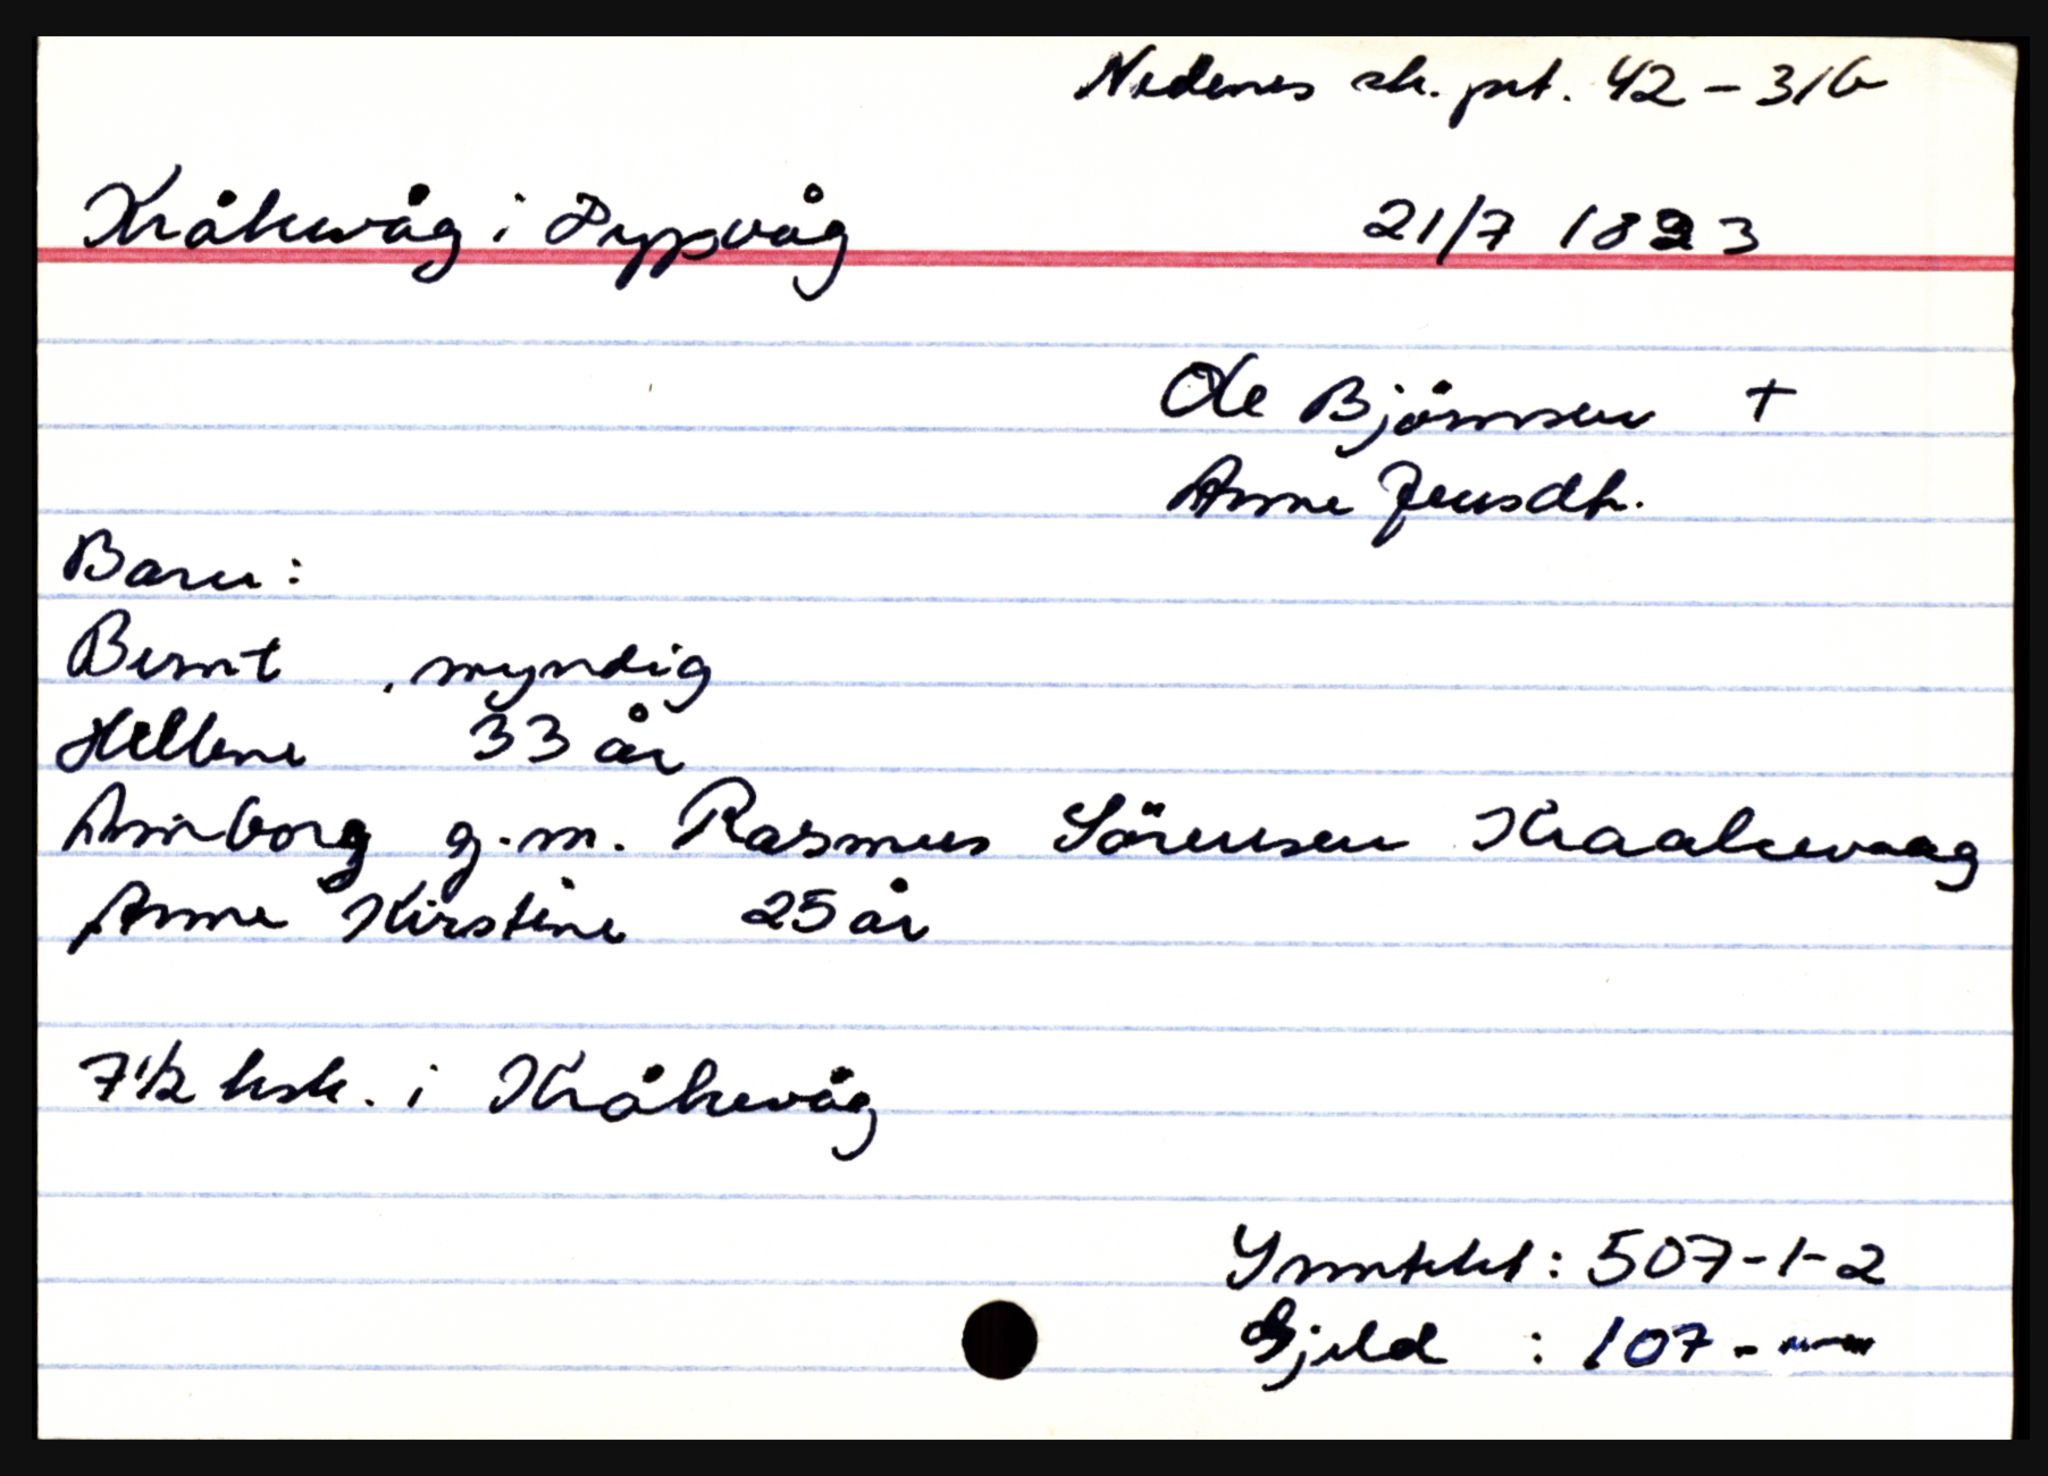 Nedenes sk. prt. 42 - 31b
Kråkevåg i Dypvåg 21/7 1823
Ole Björnsen +
Anne Jensdtr.
Barn:
Bernt , myndig
Hellene 33 år
Anborg g.m. Rasmus Sörensen Kraakevaag
Anne Kirstine 25 år
7 1/2 ksk. i Kråkevåg
Inntekt : 507-1-2
Gjeld : 107-"-"